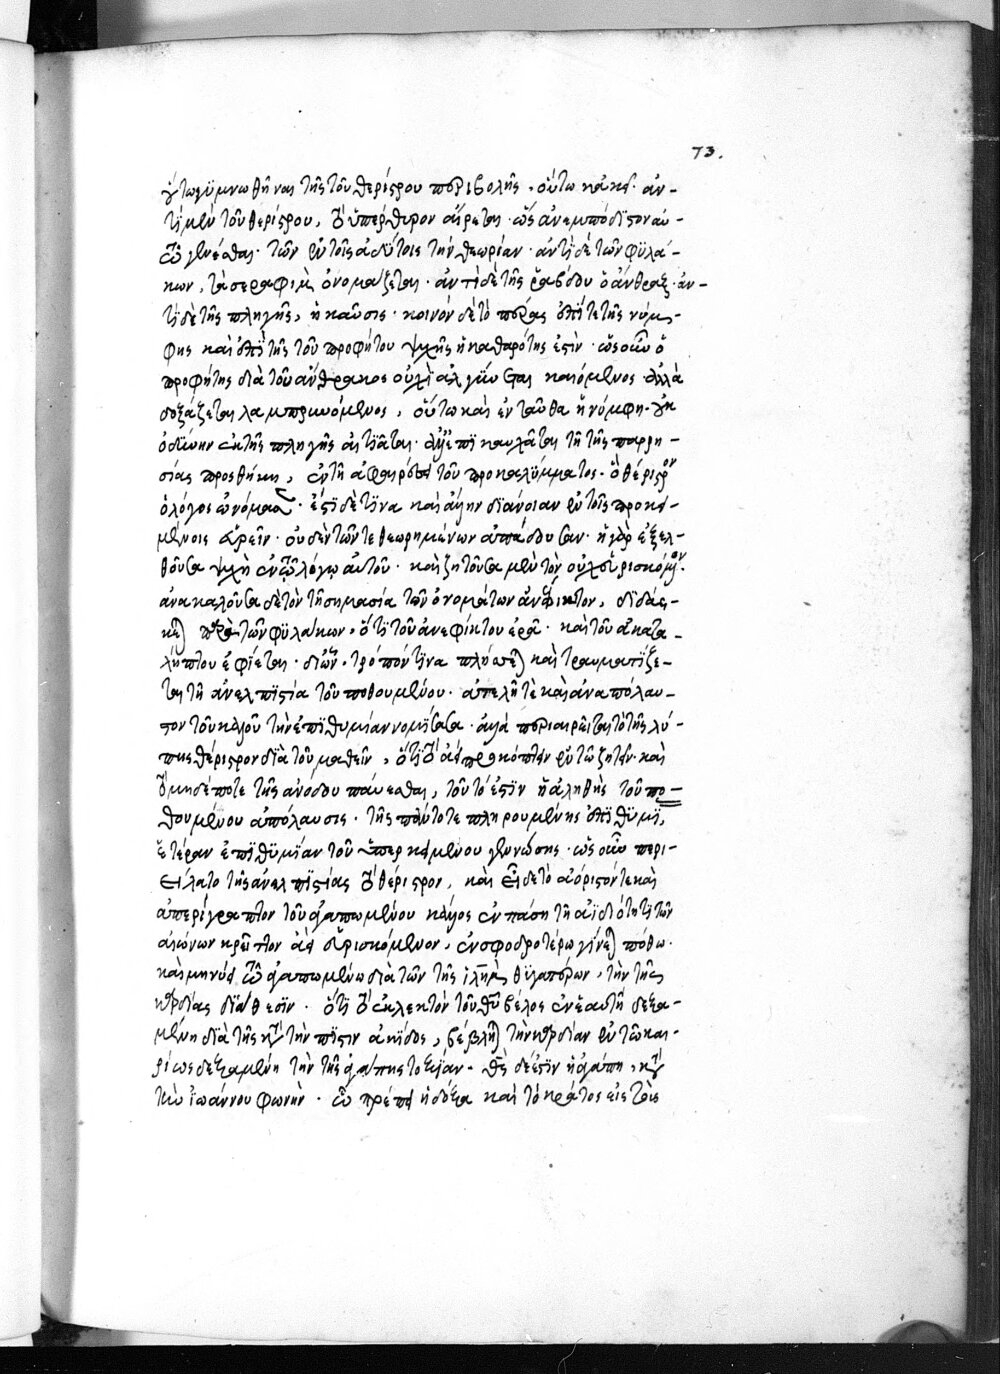 73.
γυμνωθῆναι τῆς τοῦ θερίστρου περιβολῆς· οὕτω κἀκεῖ· ἀν-
τὶ μὲν τοῦ θερίστρου, τὸ ὑπέρθυρον αἴρεται· ὡς ἀνεμπόδιστον αὐ-
τῷ γενέσθαι· τῶν ἐν τοῖς ἀδύτοις τὴν θεωρίαν· ἀντὶ δὲ τῶν φυλά-
κων, τὰ σεραφὶμ ὀνομάζεται· ἀντὶ δὲ τῆς ῥάβδου ὁ ἄνθραξ· ἀν-
τὶ δὲ τῆς πληγῆς, ἡ καῦσις· κοινὸν δὲ τὸ πέρας ἐπί τε τῆς νύμ-
φης καὶ ἐπὶ τῆς τοῦ προφήτου ψυχῆς ἡ καθαρότης ἐστὶν· ὡς οὖν ὁ
προφήτης διὰ τοῦ ἄνθρακος οὐκ ἀλγύνεται καιόμενος ἀλλὰ
δοξάζεται λαμπρυνόμενος, οὕτω καὶ ἐνταῦθα ἡ νύμφη· οὐκ
ὀδύνην ἐκ τῆς πληγῆς αἰτιᾶται· ἀλλ' ἐπικαυχᾶται τῇ τῆς παρρη-
σίας προσθήκῃ, ἐν τῇ ἀφαιρέσει τοῦ προκαλύμματος· ὃ θέριστρον
ὁ λόγος ὠνόμασε· ἔστι δέ τινα καὶ ἄλλην διάνοιαν ἐν τοῖς προκει-
μένοις εὑρεῖν· οὐδὲν τῶν τεθεωρημένων ἀπᾴδουσαν· ἡ γὰρ ἐξελ-
θοῦσα ψυχὴ ἐν τῷ λόγῳ αὐτοῦ· καὶ ζητοῦσα μὲν τὸν οὐχ εὑρισκόμενον·
ἀνακαλοῦσα δὲ τὸν τῇ σημασίᾳ τῶν ὀνομάτων ἀνέφικτον, διδάσ-
κεται παρὰ τῶν φυλάκων· ὅτι τοῦ ἀνεφίκτου ἐρᾷ· καὶ τοῦ ἀκατα-
λήπτου ἐφίεται· δι' ὧν· τρόπον τινα πλήσσεται καὶ τραυματίζε-
ται τῇ ἀνελπιστίᾳ τοῦ ποθουμένου· ἀτελῆ τε καὶ ἀναπόλαυ-
στον τοῦ καλοῦ τὴν ἐπιθυμίαν νομίσασα· ἀλλὰ περιαιρεῖται τὸ τῆς λύ-
πης θέριστρον διὰ τοῦ μαθεῖν, ὅτι τὸ ἀεὶ προκόπτειν ἐν τῷ ζητεῖν· καὶ
τὸ μηδέποτε τῆς ἀνόδου παύεσθαι, τοῦτό ἐστιν ἡ ἀληθὴς τοῦ πο-
θουμένου ἀπόλαυσις· τῆς πάντοτε πληρουμένης ἐπιθυμί,
ἑτέραν ἐπιθυμίαν τοῦ ὑπερκειμένου γεννώσης· ὡς οὖν περι-
είλατο τῆς ἀνελπιστίας τὸ θέριστρον, καὶ εἶδε τὸ ἀόριστόν τε καὶ
ἀπερίγραπτον τοῦ ἀγαπωμένου κάλλος ἐν πάσῃ τῇ ἀϊδιότητι τῶν
αἰώνων κρεῖττον ἀεὶ εὑρισκόμενον, ἐν σφοδροτέρῳ γίνεται πόθῳ·
καὶ μηνύει τῷ ἀγαπωμένῳ διὰ τῶν τῆς ἰλημ̀ θυγατέρων, τὴν τῆς
καρδίας διάθεσιν· ὅτι τὸ ἐκλεκτὸν τοῦ θυ βέλος ἐν ἑαυτῇ δεξα-
μένη διὰ τῆς κατὰ τὴν πίστιν ἀκίδος, βέβληται τὴν καρδίαν ἐν τῷ και-
ρίῳ δεξαμένη τὴν τῆς ἀγάπης τοξείαν· θς δέ ἐστιν ἡ ἀγάπη, κατὰ
τὴν ἰωάννου φωνὴν· ᾧ πρέπει ἡ δόξα καὶ τὸ κράτος εἰς τοὺς